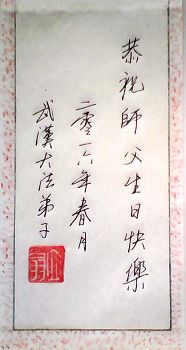 恭祝師父生日快樂
二零一六年春月
武漢大法弟子